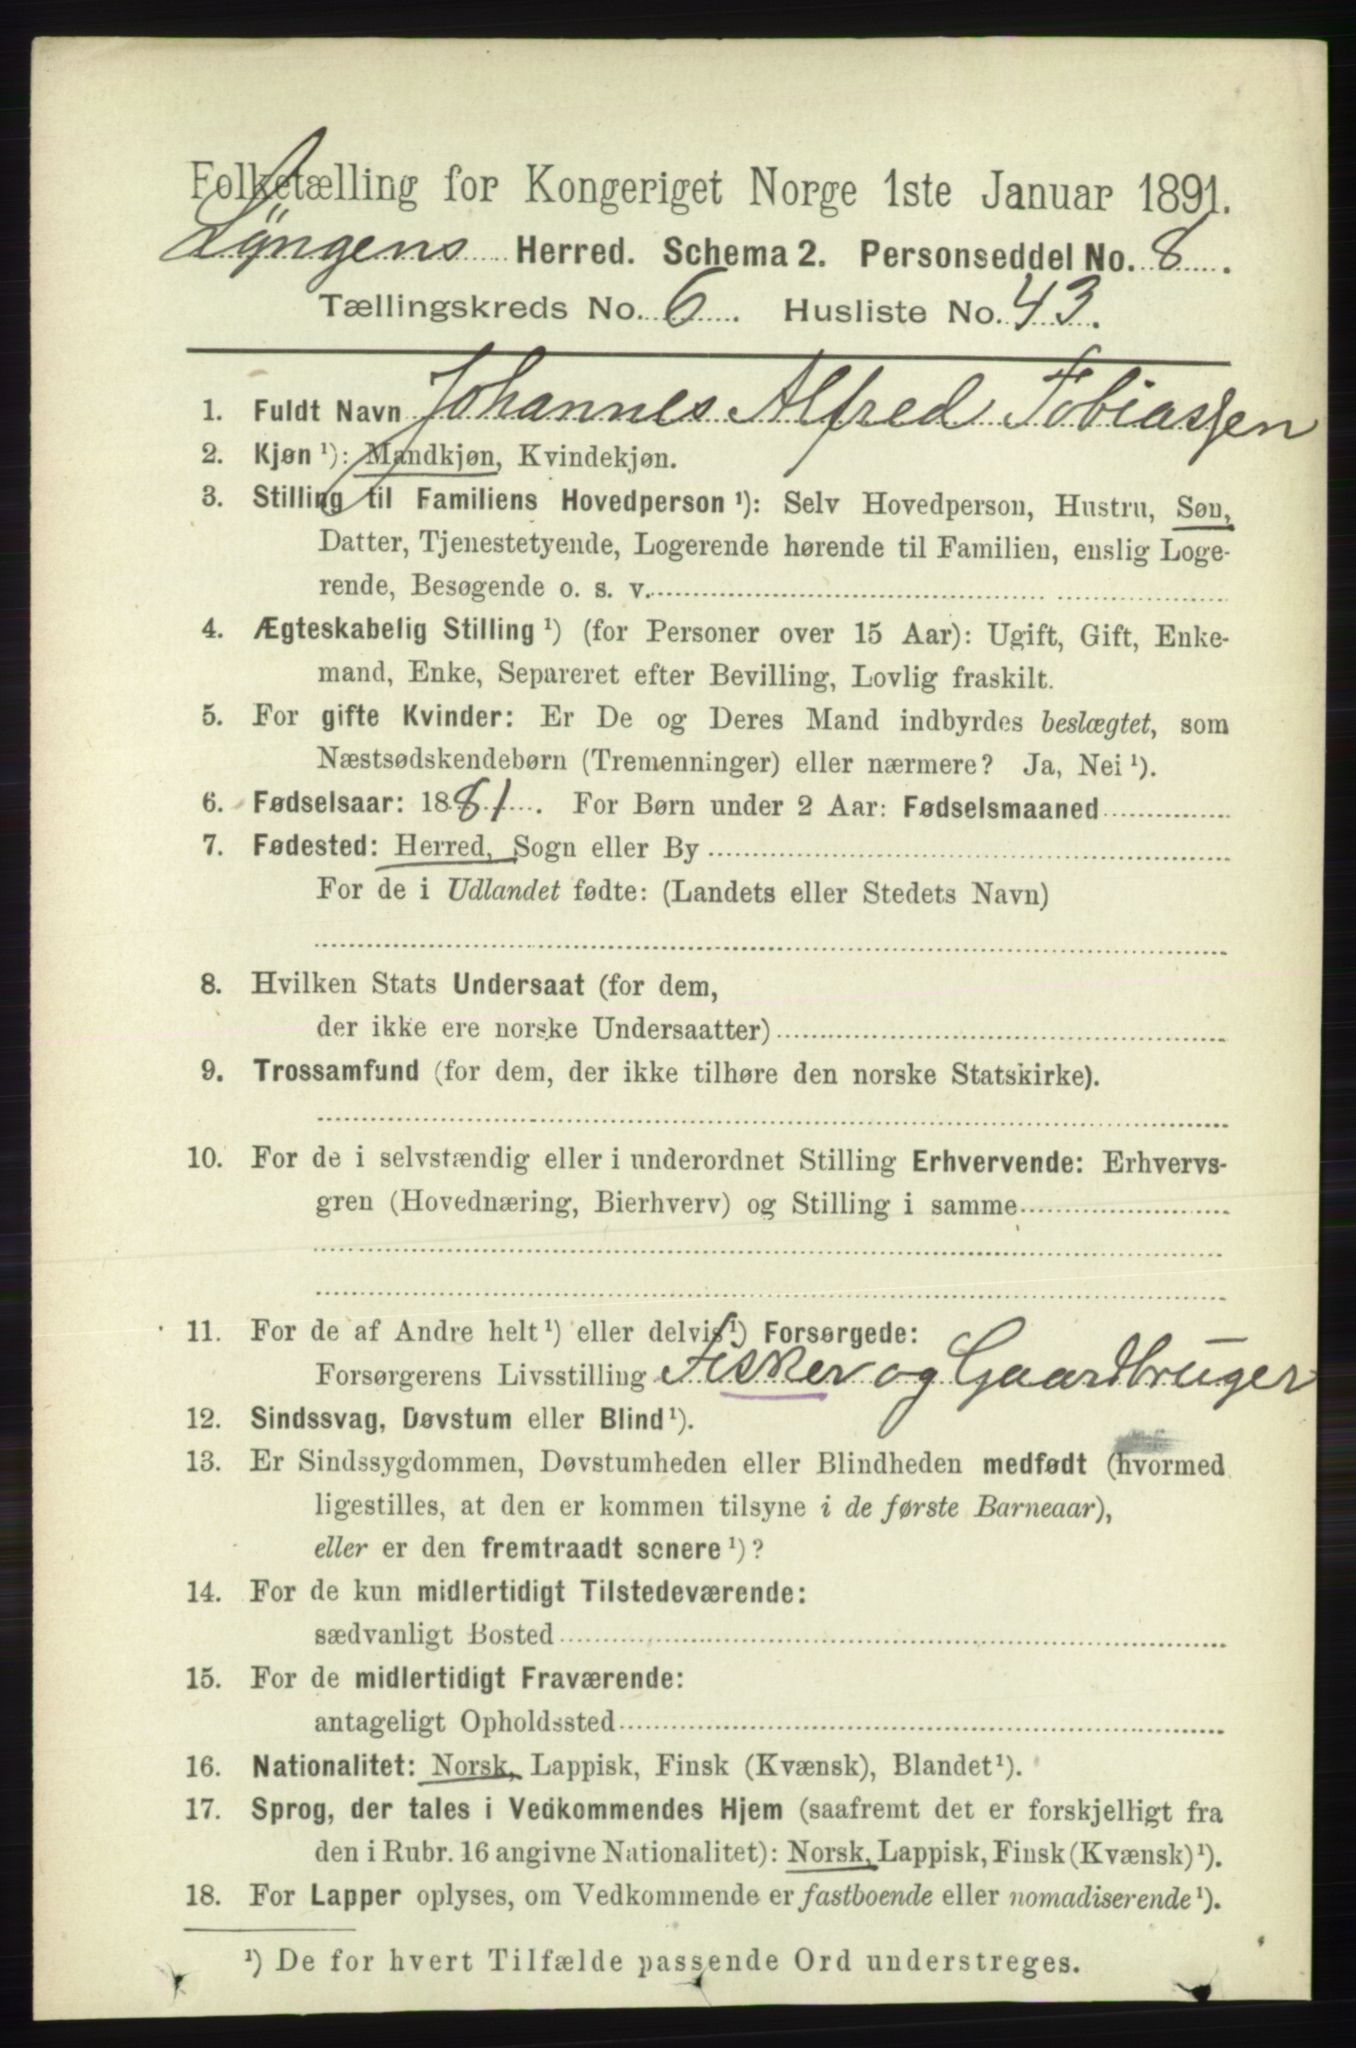 Folketælling for Kongeriget Norge 1ste Januar 1891.
Lyngens Herred. Schema 2. Personseddel No. 8.
Tællingskreds No. 6. Husliste No. 43.
1. Fuldt Navn Johannes Alfred Tobiassen
2. Kjøn ¹): Mandkjøn, Kvindekjøn.
3. Stilling til Familiens Hovedperson ¹): Selv Hovedperson, Hustru, Søn,
Datter, Tjenestetyende, Logerende hørende til Familien, enslig Loge-
rende, Besøgende o. s. v.
4. Ægteskabelig Stilling ¹) (for Personer over 15 Aar): Ugift, Gift, Enke-
mand, Enke, Separeret efter Bevilling, Lovlig fraskilt.
5. For gifte Kvinder: Er De og Deres Mand indbyrdes beslægtet, som
Næstsødskendebørn (Tremenninger) eller nærmere? Ja, Nei ¹).
6. Fødselsaar: 1881. For Børn under 2 Aar: Fødselsmaaned
7. Fødested: Herred, Sogn eller By
For de i Udlandet fødte: (Landets eller Stedets Navn)
8. Hvilken Stats Undersaat (for dem,
der ikke ere norske Undersaatter)
9. Trossamfund (for dem, der ikke tilhøre den norske Statskirke).
10. For de i selvstændig eller i underordnet Stilling Erhvervende: Erhvervs-
gren (Hovednæring, Bierhverv) og Stilling i samme
11. For de af Andre helt ¹) eller delvis ¹) Forsørgede:
Forsørgerens Livsstilling Fisker og Gaardbruger
12. Sindssvag, Døvstum eller Blind ¹).
13. Er Sindssygdommen, Døvstumheden eller Blindheden medfødt (hvormed
ligestilles, at den er kommen tilsyne i de første Barneaar),
eller er den fremtraadt senere ¹)?
14. For de kun midlertidigt Tilstedeværende:
sædvanligt Bosted
15. For de midlertidigt Fraværende:
antageligt Opholdssted
16. Nationalitet: Norsk, Lappisk, Finsk (Kvænsk), Blandet ¹).
17. Sprog, der tales i Vedkommendes Hjem (saafremt det er forskjelligt fra
den i Rubr. 16 angivne Nationalitet): Norsk, Lappisk, Finsk (Kvænsk) ¹).
18. For Lapper oplyses, om Vedkommende er fastboende eller nomadiserende ¹).
¹) De for hvert Tilfælde passende Ord understreges.